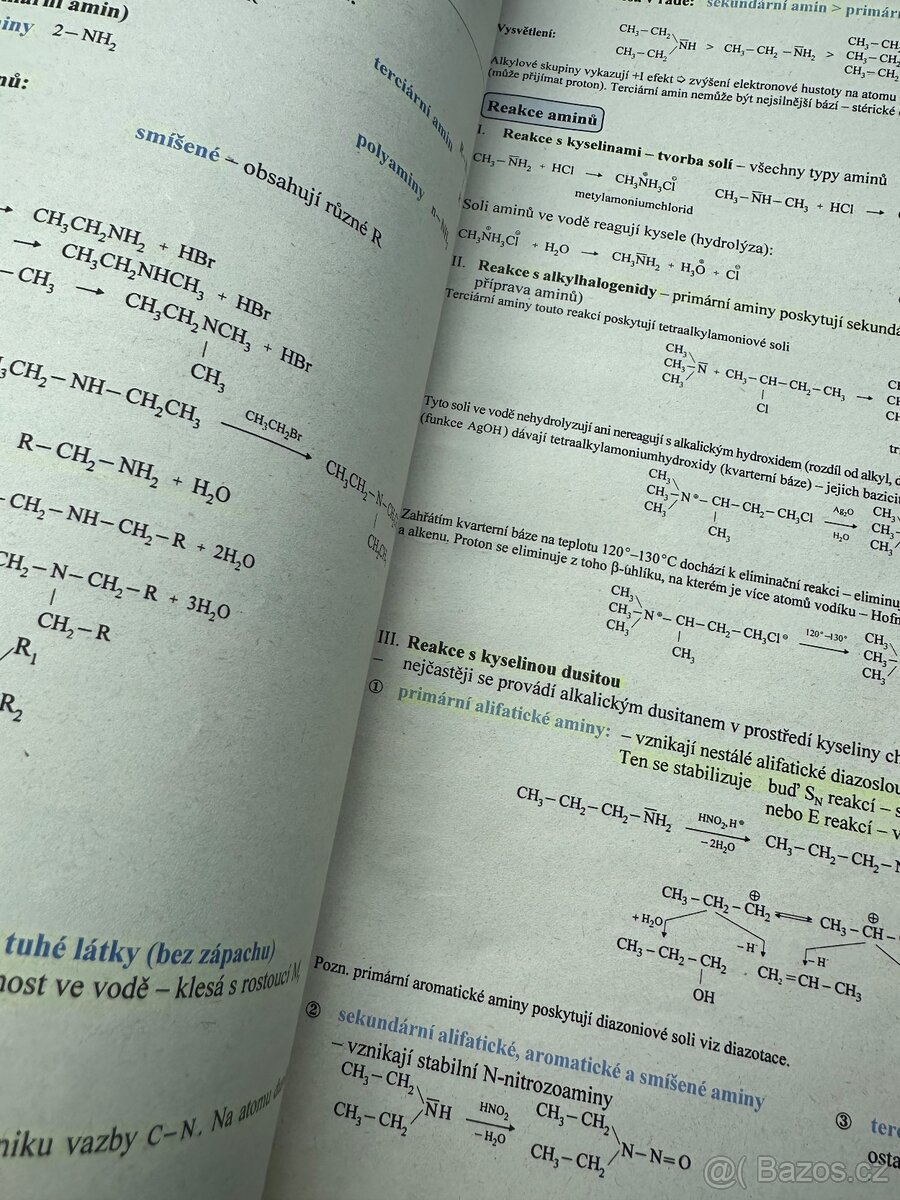 ární amin)
miny 2–NH₂
nů:
terciární amin
polyaminy n–NH₂
smíšené – obsahují různé R
→ CH₃CH₂NH₂ + HBr
→ CH₃CH₂NHCH₃ + HBr
– CH₃ → CH₃CH₂NCH₃ + HBr
|
CH₃
₃CH₂–NH–CH₂CH₃ CH₃CH₂Br → CH₃CH₂–N–
|
R–CH₂–NH₂ + H₂O
–CH₂–NH–CH₂–R + 2H₂O
CH₂–N–CH₂–R + 3H₂O
|
CH₂–R
R₁
R₂
tuhé látky (bez zápachu)
nost ve vodě – klesá s rostoucí M
niku vazby C–N. Na atomu
v řadě: sekundární amin > primárn
Vysvětlení:
CH₃–CH₂ CH₃–CH₂
NH > CH₃–CH₂–NH₂ > CH₃–CH₂
CH₃–CH₂ CH₃–CH₂
Alkylové skupiny vykazují +I efekt ⇨ zvýšení elektronové hustoty na atomu
(může přijímat proton). Terciární amin nemůže být nejsilnější bází – stérické
Reakce aminů
I. Reakce s kyselinami – tvorba solí – všechny typy aminů
CH₃–NH₂ + HCl → CH₃NH₃Cl CH₃–NH–CH₃ + HCl →
metylamoniumchlorid
Soli aminů ve vodě reagují kysele (hydrolýza):
CH₃NH₃Cl + H₂O → CH₃NH₂ + H₃O + Cl
II. Reakce s alkylhalogenidy – primární aminy poskytují sekundá
příprava aminů)
Terciární aminy touto reakcí poskytují tetraalkylamoniové soli
CH₃
CH₃–N + CH₃–CH–CH₂–CH₃ →
CH₃ |
Cl
Tyto soli ve vodě nehydrolyzují ani nereagují s alkalickým hydroxidem (rozdíl od alkyl, d
(funkce AgOH) dávají tetraalkylamoniumhydroxidy (kvarterní báze) – jejich bazicit
CH₃
CH₃–N⊕–CH–CH₂–CH₃Cl Ag₂O → H₂O CH₃
CH₃ |
CH₃
Zahřátím kvarterní báze na teplotu 120°–130°C dochází k eliminační reakci – eliminuj
a alkenu. Proton se eliminuje z toho β-úhlíku, na kterém je více atomů vodíku – Hofm
CH₃
CH₃–N⊕–CH–CH₂–CH₃Cl 120°–130° → CH₃
CH₃ |
CH₃
III. Reakce s kyselinou dusitou
– nejčastěji se provádí alkalickým dusitanem v prostředí kyseliny ch
① primární alifatické aminy: – vznikají nestálé alifatické diazoslou
Ten se stabilizuje buď S_N reakcí – s
nebo E reakcí – v
CH₃–CH₂–CH₂–NH₂ HNO₂,H⊕ → –2H₂O CH₃–CH₂–CH₂–N
CH₃–CH₂–CH₂⊕ ⇌ CH₃–CH⊕–
+H₂O –H –H
CH₃–CH₂–CH₂ CH₂=CH–CH₃
|
OH
Pozn. primární aromatické aminy poskytují diazoniové soli viz diazotace.
② sekundární alifatické, aromatické a smíšené aminy
– vznikají stabilní N-nitrozoaminy
CH₃–CH₂ CH₃–CH₂
NH HNO₂ → –H₂O N–N=O
CH₃–CH₂ CH₃–CH₂
③ terc
osta
@( Bazos.cz